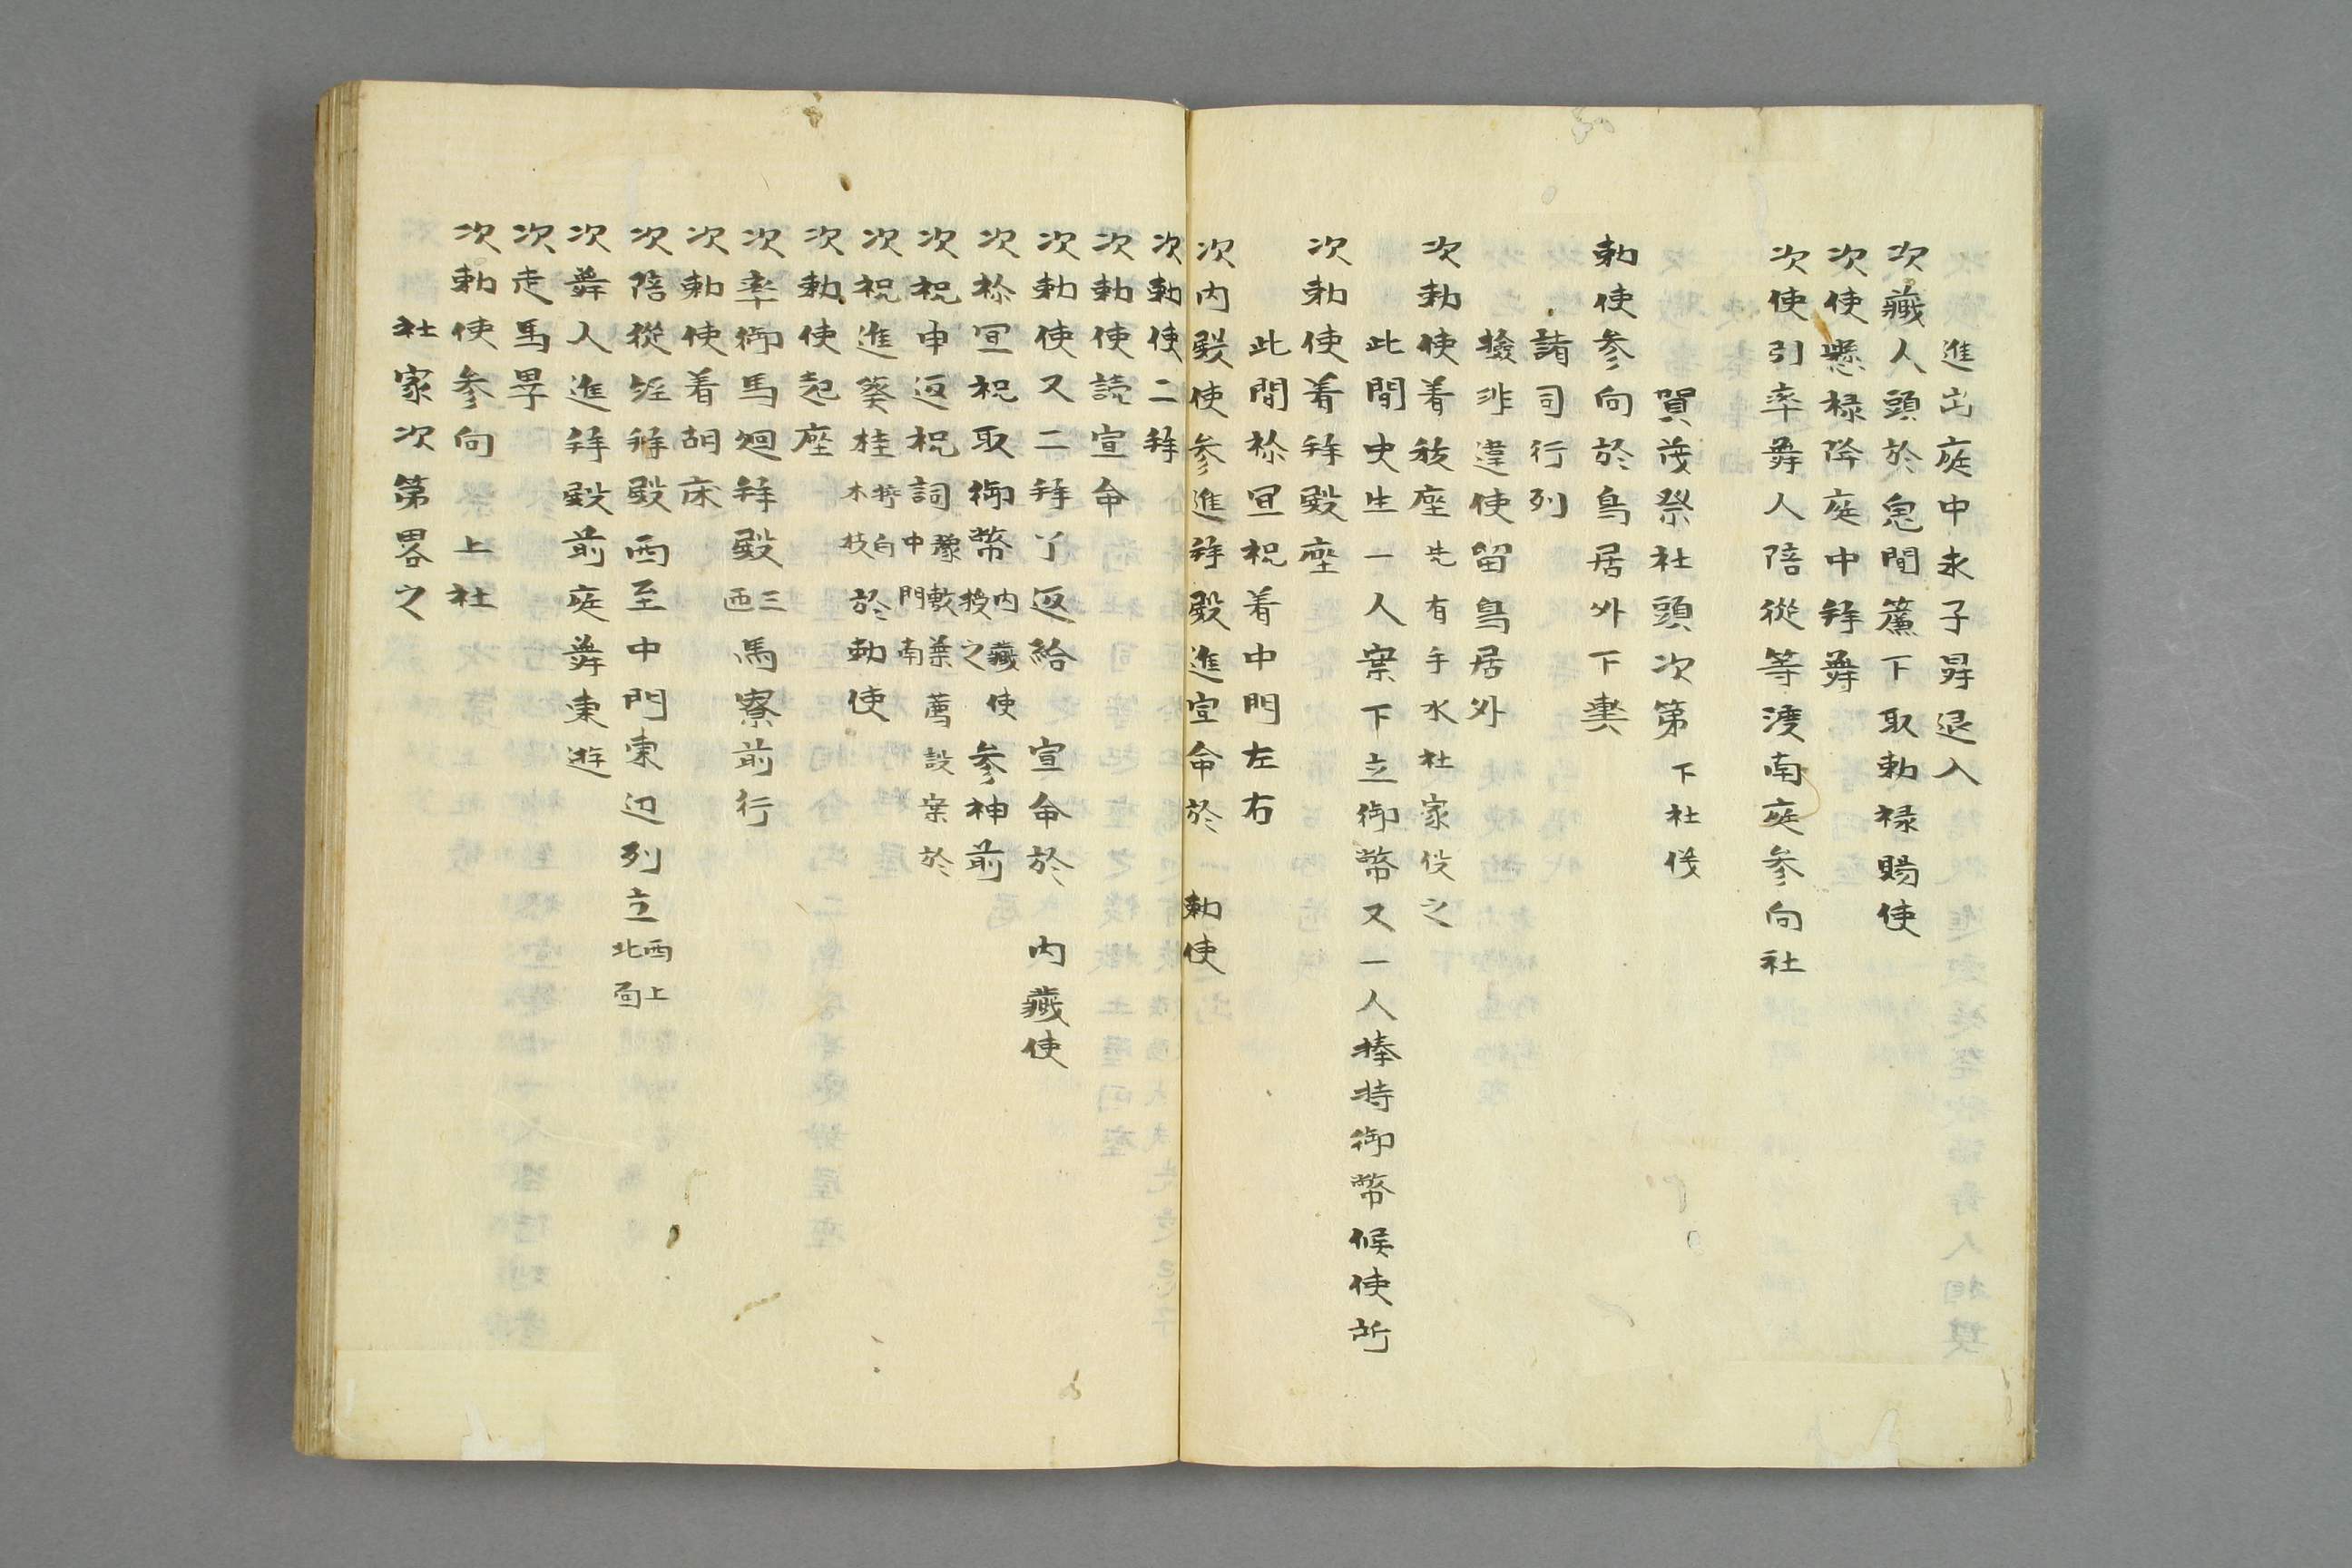 進出庭中求子舁退入
次藏人頭於鬼間簾下取勅禄賜使
次使懸禄降庭中拜舞
次使引率舞人陪從等渡南庭参向社
賀茂祭社頭次第 下社儀
勅使参向於鳥居外下輿
諸司行列
撿非違使留鳥居外
次勅使着祓座 先有手水社家役之
此間史生一人案下立御幣又一人捧持御幣候使所
次勅使着拜殿座
此間祢冝祝着中門左右
次内殿使参進拜殿進宣命於 勅使
次勅使二拜
次勅使読宣命
次勅使又二拜了返給 宣命於 内藏使
次祢冝祝取御幣 内藏使授之 参神前
次祝申返祝詞 豫敷葉薦設案於中門南
次祝進葵桂 挿白木枝 於勅使
次勅使起座
次率御馬廻拜殿 三匝 馬寮前行
次勅使着胡床
次陪從經拜殿西至中門東辺列立 西上北面
次舞人進拜殿前庭舞東遊
次走馬畢
次勅使参向 上社
社家次第畧之